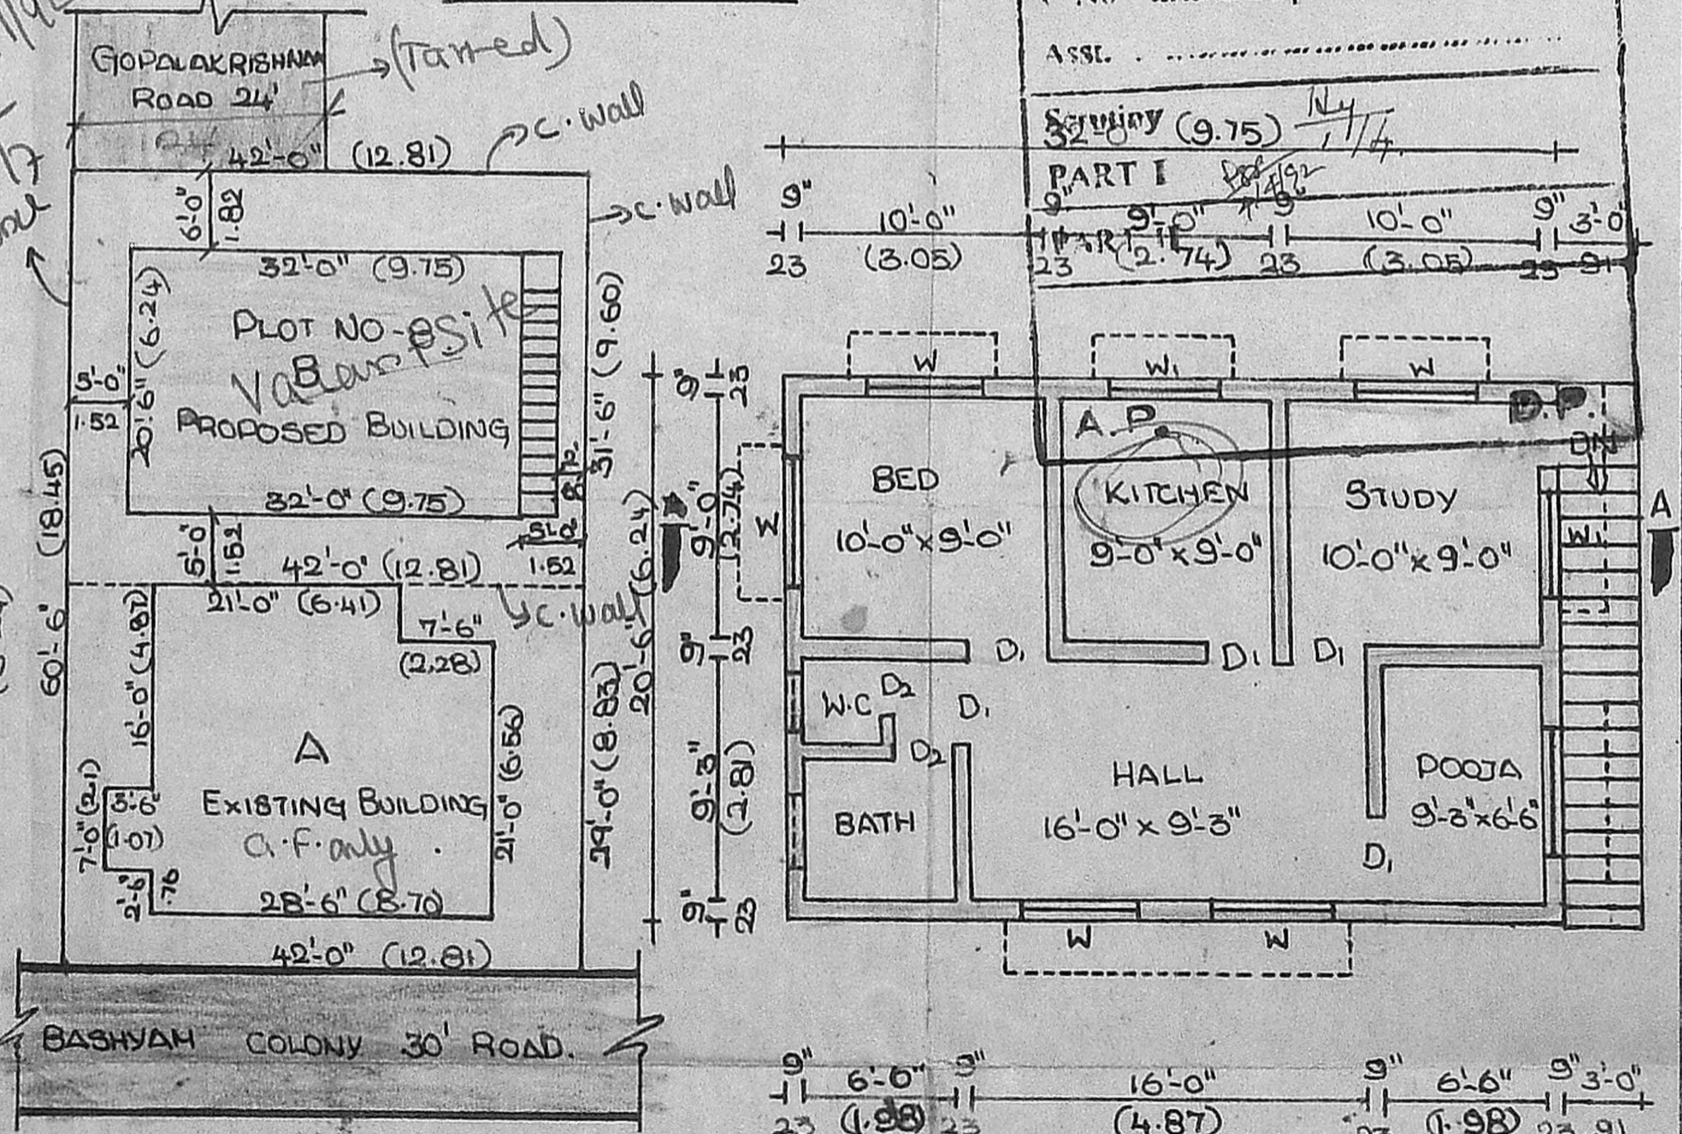 GOPALAKRISHNAN
ROAD 24'
(Tarred)
24
42'-0" (12.81)
C. wall
C. wall
6'-0"
1.82
32'-0" (9.75)
PLOT NO-
B
Vacant site
PROPOSED BUILDING
20'-6" (6.24)
5'-0"
1.52
31'-6" (9.60)
32'-0" (9.75)
5'-0"
1.52
5'-0"
1.52
42'-0" (12.81)
C. wall
60'-6" (18.45)
21'-0" (6.41)
7'-6"
(2.28)
16'-0" (4.87)
A
EXISTING BUILDING
G.F. only
3'-6"
(1.07)
7'-0" (2.1)
2'-6"
.76
21'-0" (6.56)
29'-0" (8.83)
28'-6" (8.70)
42'-0" (12.81)
BASHYAM COLONY 30' ROAD.
ASSt.
Scrutiny
32'-0" (9.75)
PART I
PART II
9" 10'-0" 9" 9'-0" 9 10'-0" 9" 3'-0"
23 (3.05) 23 (2.74) 23 (3.05) 23 91
W W1 W
A.P. D.P.
DN
BED
10'-0" x 9'-0"
KITCHEN
9'-0" x 9'-0"
STUDY
10'-0" x 9'-0"
W
W1
A
20'-6" (6.24)
9" 23
9'-0" (2.74)
9" 23
9'-3" (2.81)
9" 23
D1 D1 D1
W.C D2 D1
D2
BATH
HALL
16'-0" x 9'-3"
POOJA
9'-3" x 6'-6"
D1
W W
9" 6'-6" 9" 16'-0" 9" 6'-6" 9" 3'-0"
23 (1.98) 23 (4.87) 23 (1.98) 23 91